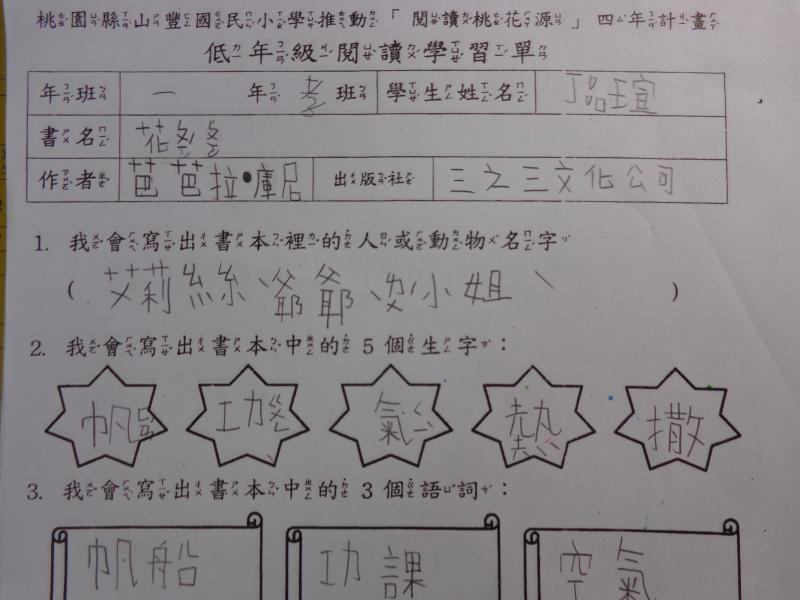 桃園縣山豐國民小學推動「閱讀桃花源」四年計畫
低年級閱讀學習單
年班 一 年 孝 班 學生姓名 丁品瑄
書名 花婆婆
作者 芭芭拉•庫尼 出版社 三之三文化公司
1. 我會寫出書本裡的人或動物名字
( 艾莉絲、爺爺、小姐、 )
2. 我會寫出書本中的5個生字：
帆 功 氣 熱 撒
3. 我會寫出書本中的3個語詞：
帆船 功課 空氣